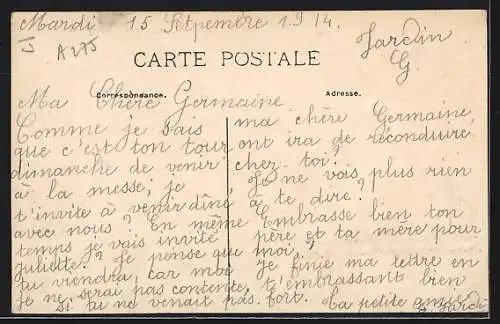 Mardi 15 Setpembre 1914.
A275
Jardin
G.
CARTE POSTALE
Correspondance.
Adresse.
Ma Chère Germaine
Comme je sais
que c'est ton tour
dimanche de venir
à la messe, je
t'invite à venir dîné
avec nous? En même
temps je vais invité
juliette? Je pense que
tu viendra, car moi
je ne serai pas contente,
si tu ne venait pas.
ma chère Germaine,
ont ira de réconduire
chez toi?
Je ne vois plus rien
à te dire?
Embrasse bien ton
père et ta mère pour
moi,
Je finie ma lettre en
t'embrassant bien
fort. Ta petite amie
G. Jardi